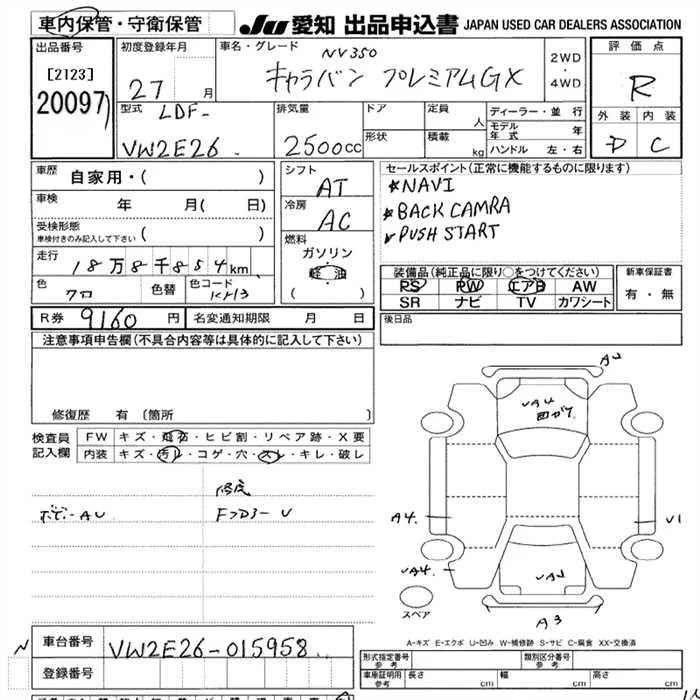 車内保管・守衛保管
JU 愛知 出品申込書 JAPAN USED CAR DEALERS ASSOCIATION
出品番号
[2123]
20097
初度登録年月
27 月
車名・グレード
NV350
キャラバン プレミアムGX
2WD
・
4WD
評価点
R
外装 内装
D C
型式 LDF-
VW2E26
排気量
2500cc
ドア
形状
定員 人
積載 kg
ディーラー・並行
モデル年式 年
ハンドル 左・右
車歴 自家用・( )
車検 年 月( 日)
受検形態
車検付きのみ記入して下さい ( )
走行 18万8千854km
色 クロ 色替 色コード KH3
シフト
AT
冷房
AC
燃料
ガソリン
( )
セールスポイント(正常に機能するものに限ります)
★NAVI
★BACK CAMRA
PUSH START
装備品(純正品に限り○をつけてください)
PS PW エアB AW
SR ナビ TV カワシート
新車保証書
有・無
R券 9160 円 名変通知期限 月 日
後日品
注意事項申告欄(不具合内容等は具体的に記入して下さい)
修復歴 有〔箇所 〕
検査員
記入欄
FW キズ・飛石・ヒビ割・リペア跡・X要
内装 キズ・汚レ・コゲ・穴・スレ・キレ・破レ
ボデーAU
修復
AU
A4
A4.
V1
A4.
A3
スペア
A-キズ E-エクボ U-凹み W-補修跡 S-サビ C-腐食 XX-交換済
車台番号 VW2E26-015958
登録番号
型式指定番号
参考
類別区分番号
参考
車庫証明用
参考
長さ cm 幅 cm 高さ cm